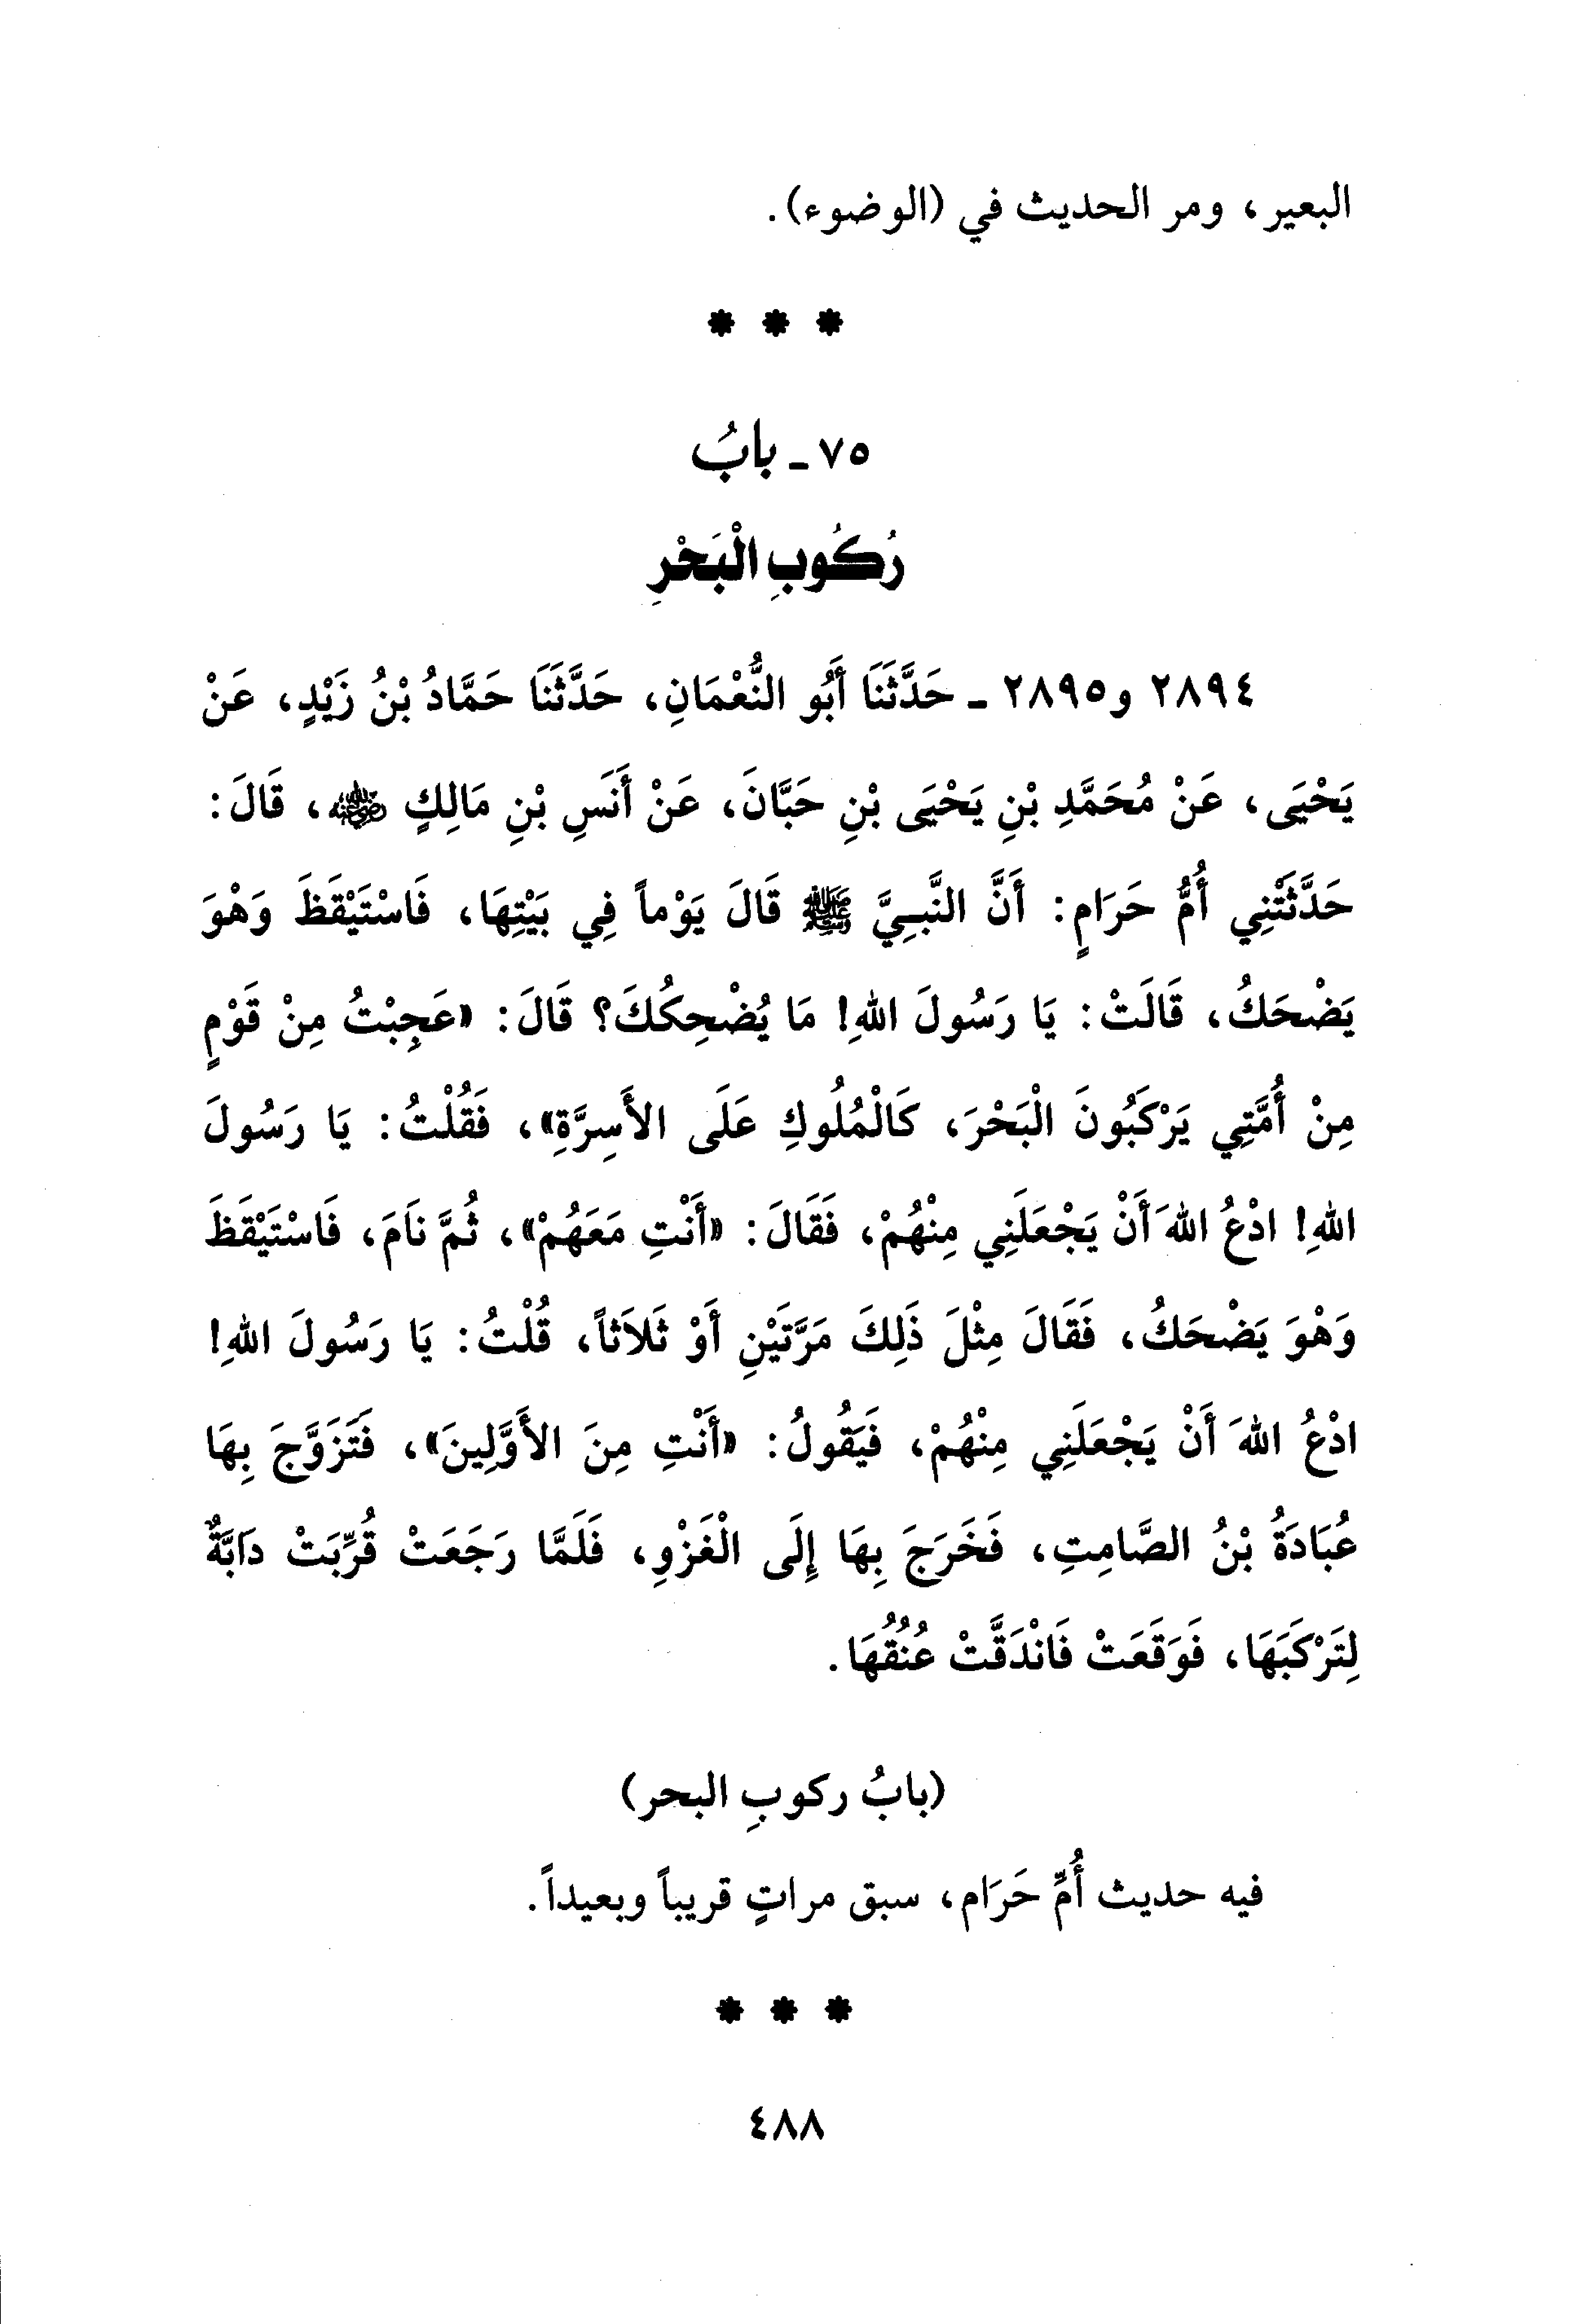 البعير، ومر الحديث في (الوضوء).
* * *
٧٥ ـ بابُ
رُكُوبِ الْبَحْرِ
٢٨٩٤ و٢٨٩٥ ـ حَدَّثَنَا أَبُو النُّعْمَانِ، حَدَّثَنَا حَمَّادُ بْنُ زَيْدٍ، عَنْ
يَحْيَى، عَنْ مُحَمَّدِ بْنِ يَحْيَى بْنِ حَبَّانَ، عَنْ أَنَسِ بْنِ مَالِكٍ ﵁، قَالَ:
حَدَّثَتْنِي أُمُّ حَرَامٍ: أَنَّ النَّبِيَّ ﷺ قَالَ يَوْماً فِي بَيْتِهَا، فَاسْتَيْقَظَ وَهْوَ
يَضْحَكُ، قَالَتْ: يَا رَسُولَ اللهِ! مَا يُضْحِكُكَ؟ قَالَ: «عَجِبْتُ مِنْ قَوْمٍ
مِنْ أُمَّتِي يَرْكَبُونَ الْبَحْرَ، كَالْمُلُوكِ عَلَى الأَسِرَّةِ»، فَقُلْتُ: يَا رَسُولَ
اللهِ! ادْعُ اللهَ أَنْ يَجْعَلَنِي مِنْهُمْ، فَقَالَ: «أَنْتِ مَعَهُمْ»، ثُمَّ نَامَ، فَاسْتَيْقَظَ
وَهْوَ يَضْحَكُ، فَقَالَ مِثْلَ ذَلِكَ مَرَّتَيْنِ أَوْ ثَلاَثاً، قُلْتُ: يَا رَسُولَ اللهِ!
ادْعُ اللهَ أَنْ يَجْعَلَنِي مِنْهُمْ، فَيَقُولُ: «أَنْتِ مِنَ الأَوَّلِينَ»، فَتَزَوَّجَ بِهَا
عُبَادَةُ بْنُ الصَّامِتِ، فَخَرَجَ بِهَا إِلَى الْغَزْوِ، فَلَمَّا رَجَعَتْ قُرِّبَتْ دَابَّةٌ
لِتَرْكَبَهَا، فَوَقَعَتْ فَانْدَقَّتْ عُنُقُهَا.
(بابُ ركوبِ البحر)
فيه حديث أُمِّ حَرَام، سبق مراتٍ قريباً وبعيداً.
* * *
٤٨٨